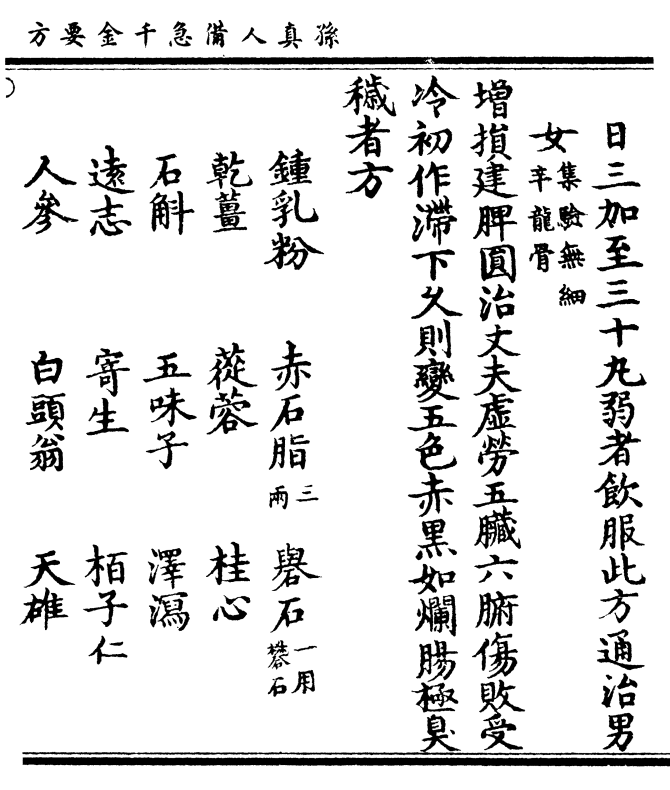 孫真人備急千金要方
日三加至三十丸弱者飲服此方通治男
女集驗無細辛龍骨
增損建脾圓治丈夫虛勞五臟六腑傷敗受
冷初作滯下久則變五色赤黑如爛腸極臭
穢者方
鍾乳粉 赤石脂三兩 礜石一用礬石
乾薑 蓯蓉 桂心
石斛 五味子 澤瀉
遠志 寄生 栢子仁
人參 白頭翁 天雄